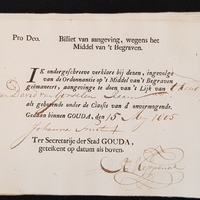 Pro Deo. Billiet van aangeving, wegens het
Middel van 't Begraven.
IK ondergeschreve verklare bij dezen, ingevolge
van de Ordonnantie op 't Middel van 't Begraven
geëmaneert, aantegeven te doen van 't Lijk van
als gehorende onder de Classis van d'onvermogende.
Gedaan binnen GOUDA, den 15 May 1805
Johanna
Ter Secretarije der Stad GOUDA,
geteikent op datum als boven.